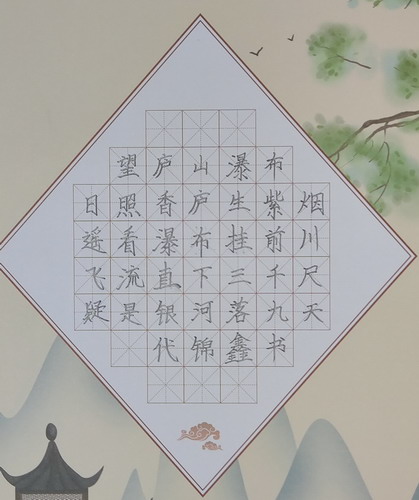 望庐山瀑布
日照香庐生紫烟
遥看瀑布挂前川
飞流直下三千尺
疑是银河落九天
代锦鑫书